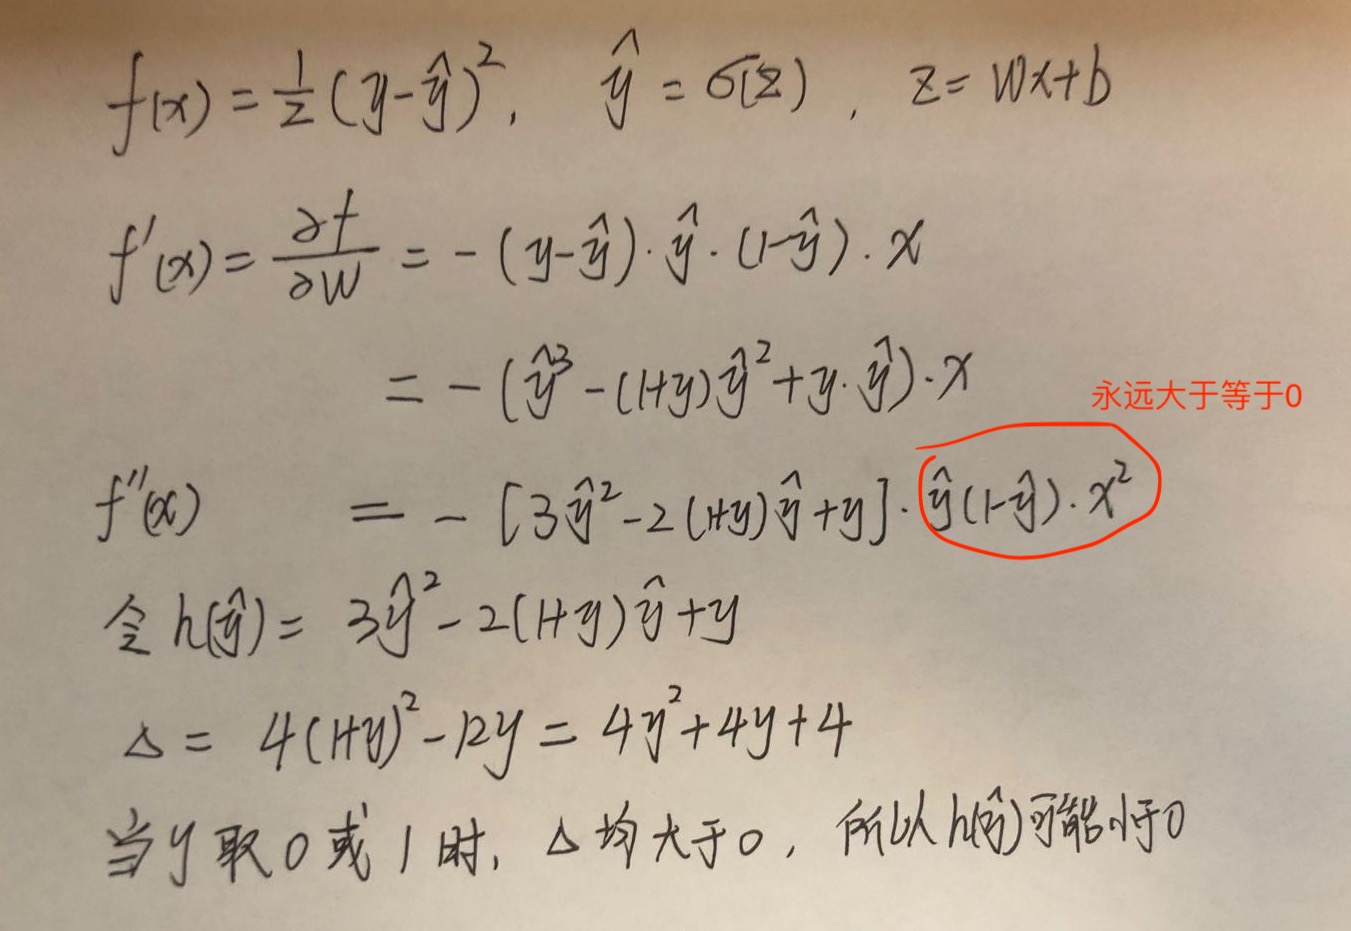 f(x) = 1/2 (y-ŷ)², ŷ = σ(z), z = wx+b
f'(x) = ∂f/∂w = -(y-ŷ)·ŷ·(1-ŷ)·x
= -(ŷ³-(1+y)ŷ²+y·ŷ)·x
永远大于等于0
f''(x) = -[3ŷ²-2(1+y)ŷ+y]·ŷ(1-ŷ)·x²
令 h(ŷ) = 3ŷ²-2(1+y)ŷ+y
Δ = 4(1+y)²-12y = 4y²+4y+4
当y取0或1时, Δ均大于0, 所以h(ŷ)可能小于0